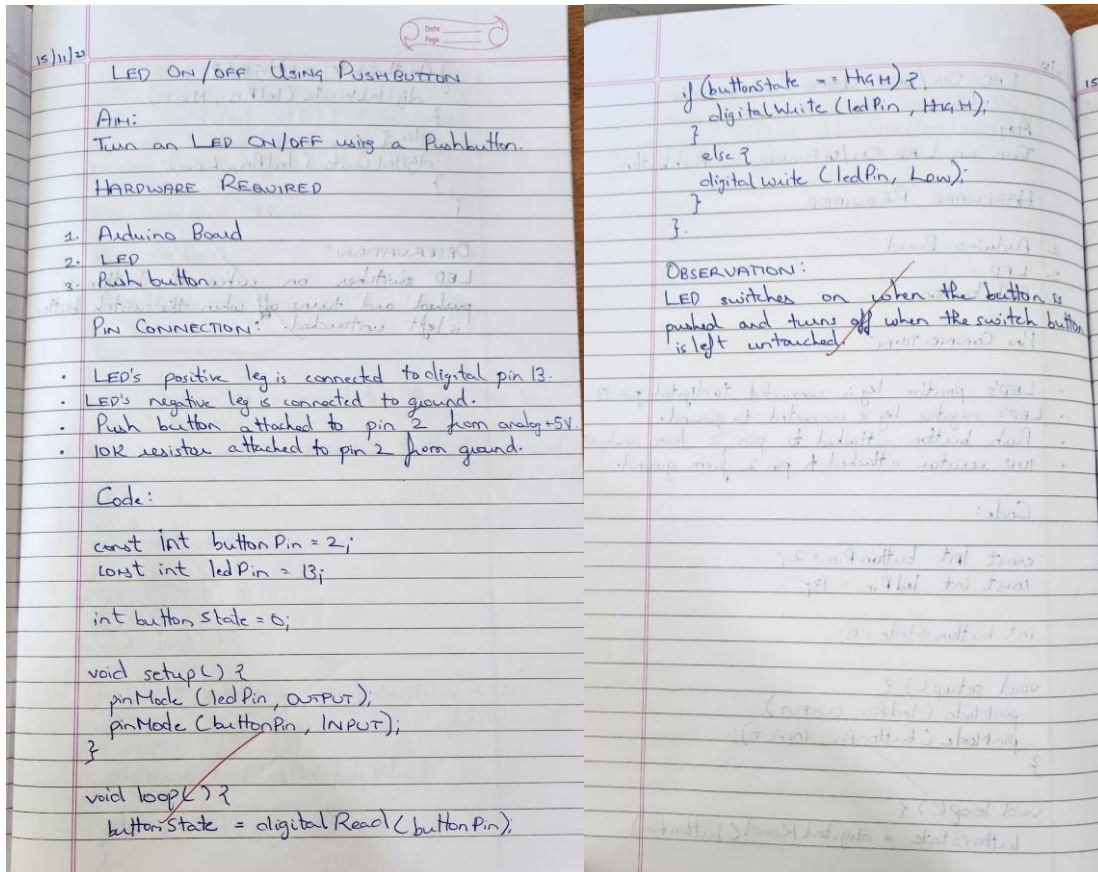 Date
Page
15/11/21
LED ON/OFF USING PUSHBUTTON
AIM:
Turn an LED ON/OFF using a Pushbutton.
HARDWARE REQUIRED
1. Arduino Board
2. LED
3. Push button
PIN CONNECTION:
• LED's positive leg is connected to digital pin 13.
• LED's negative leg is connected to ground.
• Push button attached to pin 2 from analog +5V.
• 10K resistor attached to pin 2 from ground.
Code:
const int buttonPin = 2;
const int ledPin = 13;
int button State = 0;
void setup() {
pinMode (ledPin, OUTPUT);
pinMode (buttonPin, INPUT);
}
void loop() {
buttonState = digitalRead(buttonPin);
if (buttonState == HIGH) {
digitalWrite (ledPin, HIGH);
}
else {
digitalWrite (ledPin, LOW);
}
}.
OBSERVATION:
LED switches on when the button is
pushed and turns off when the switch button
is left untouched.
15